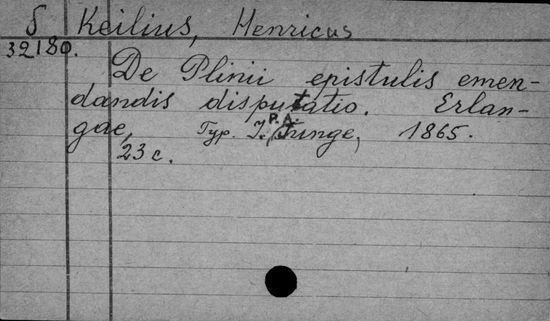 δ Keilius, Henricus
32180.
De Plinii epistulis emen-
dandis disputatio. Erlan-
gae, Typ. I. P.A. Junge, 1865.
23 c.